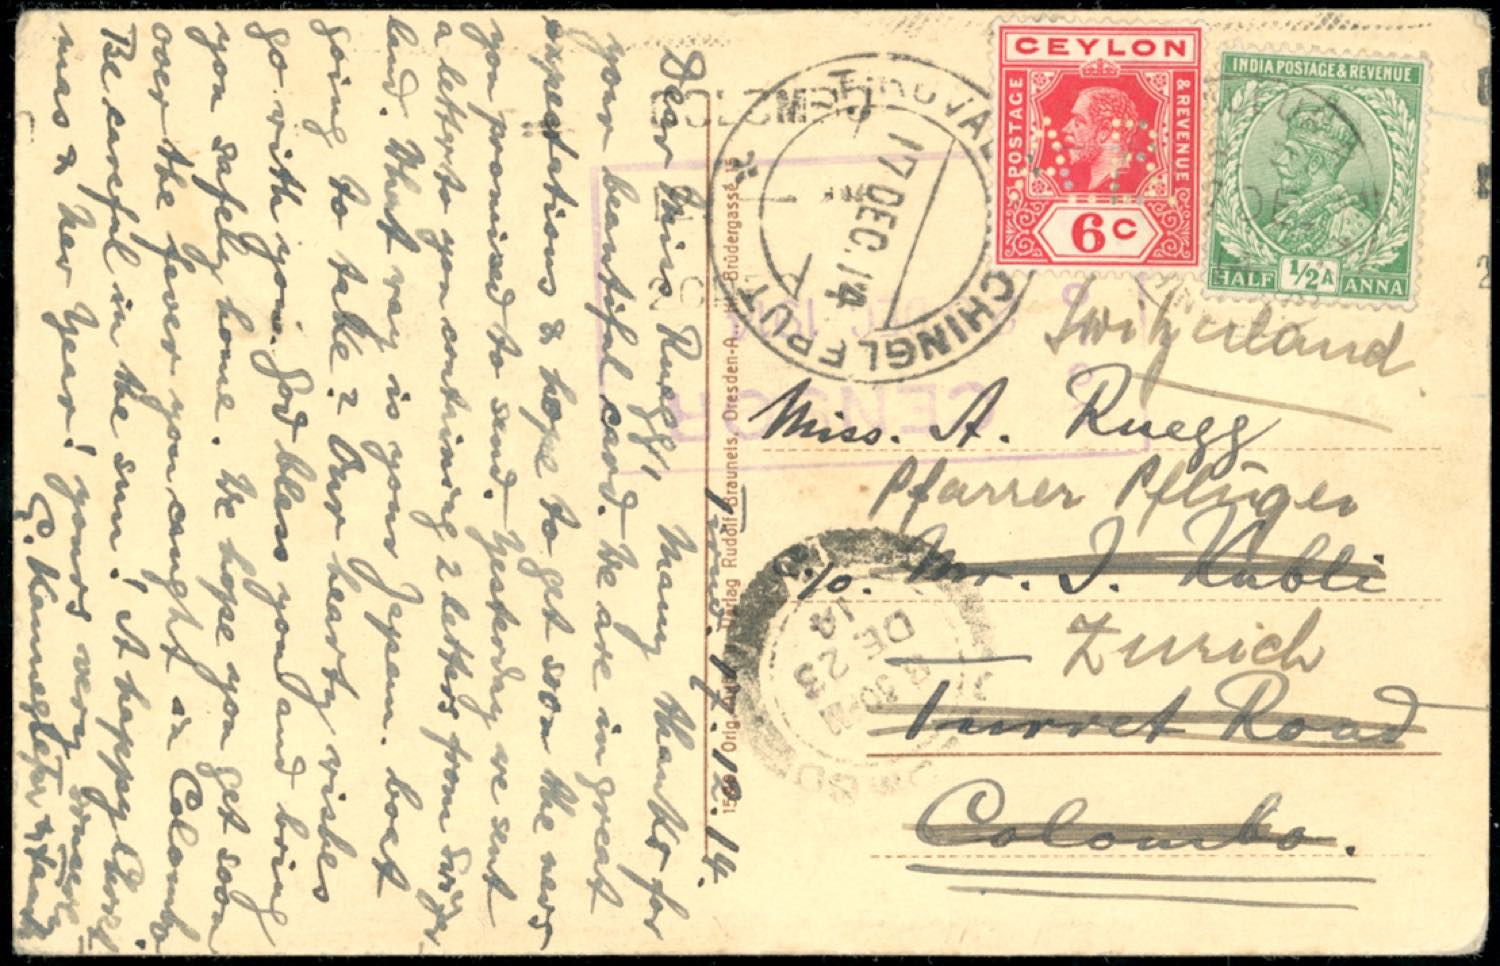 Tirur. 17.12.14.
Dear Miss Ruegg! Many thanks for
your beautiful card. We are in great
expectations & hope to get soon the news
you promised to send. Yesterday we sent
a letter to you containing 2 letters from Switzer
land. What way is your Japan. boat
going to take? Our hearty wishes
go with you. God bless you and bring
you safely home. We hope you get soon
over the fever you caught in Colombo
Be careful in the sun! A happy Christ
mas & New Year! Yours very sincerely
CEYLON
POSTAGE
& REVENUE
6 C
INDIA POSTAGE & REVENUE
HALF 1/2 A ANNA
COLOMBO
CHINGLEPUT
17 DEC. 14
CENSOR
Switzerland
Miss. A. Ruegg
Pfarrer Pflüger
c/o. Mr. J. Kabli
Zurich
Turret Road
Colombo.
8.30 PM
23
DE
14
Verlag Rudolf Braunels, Dresden-A. Brüdergasse